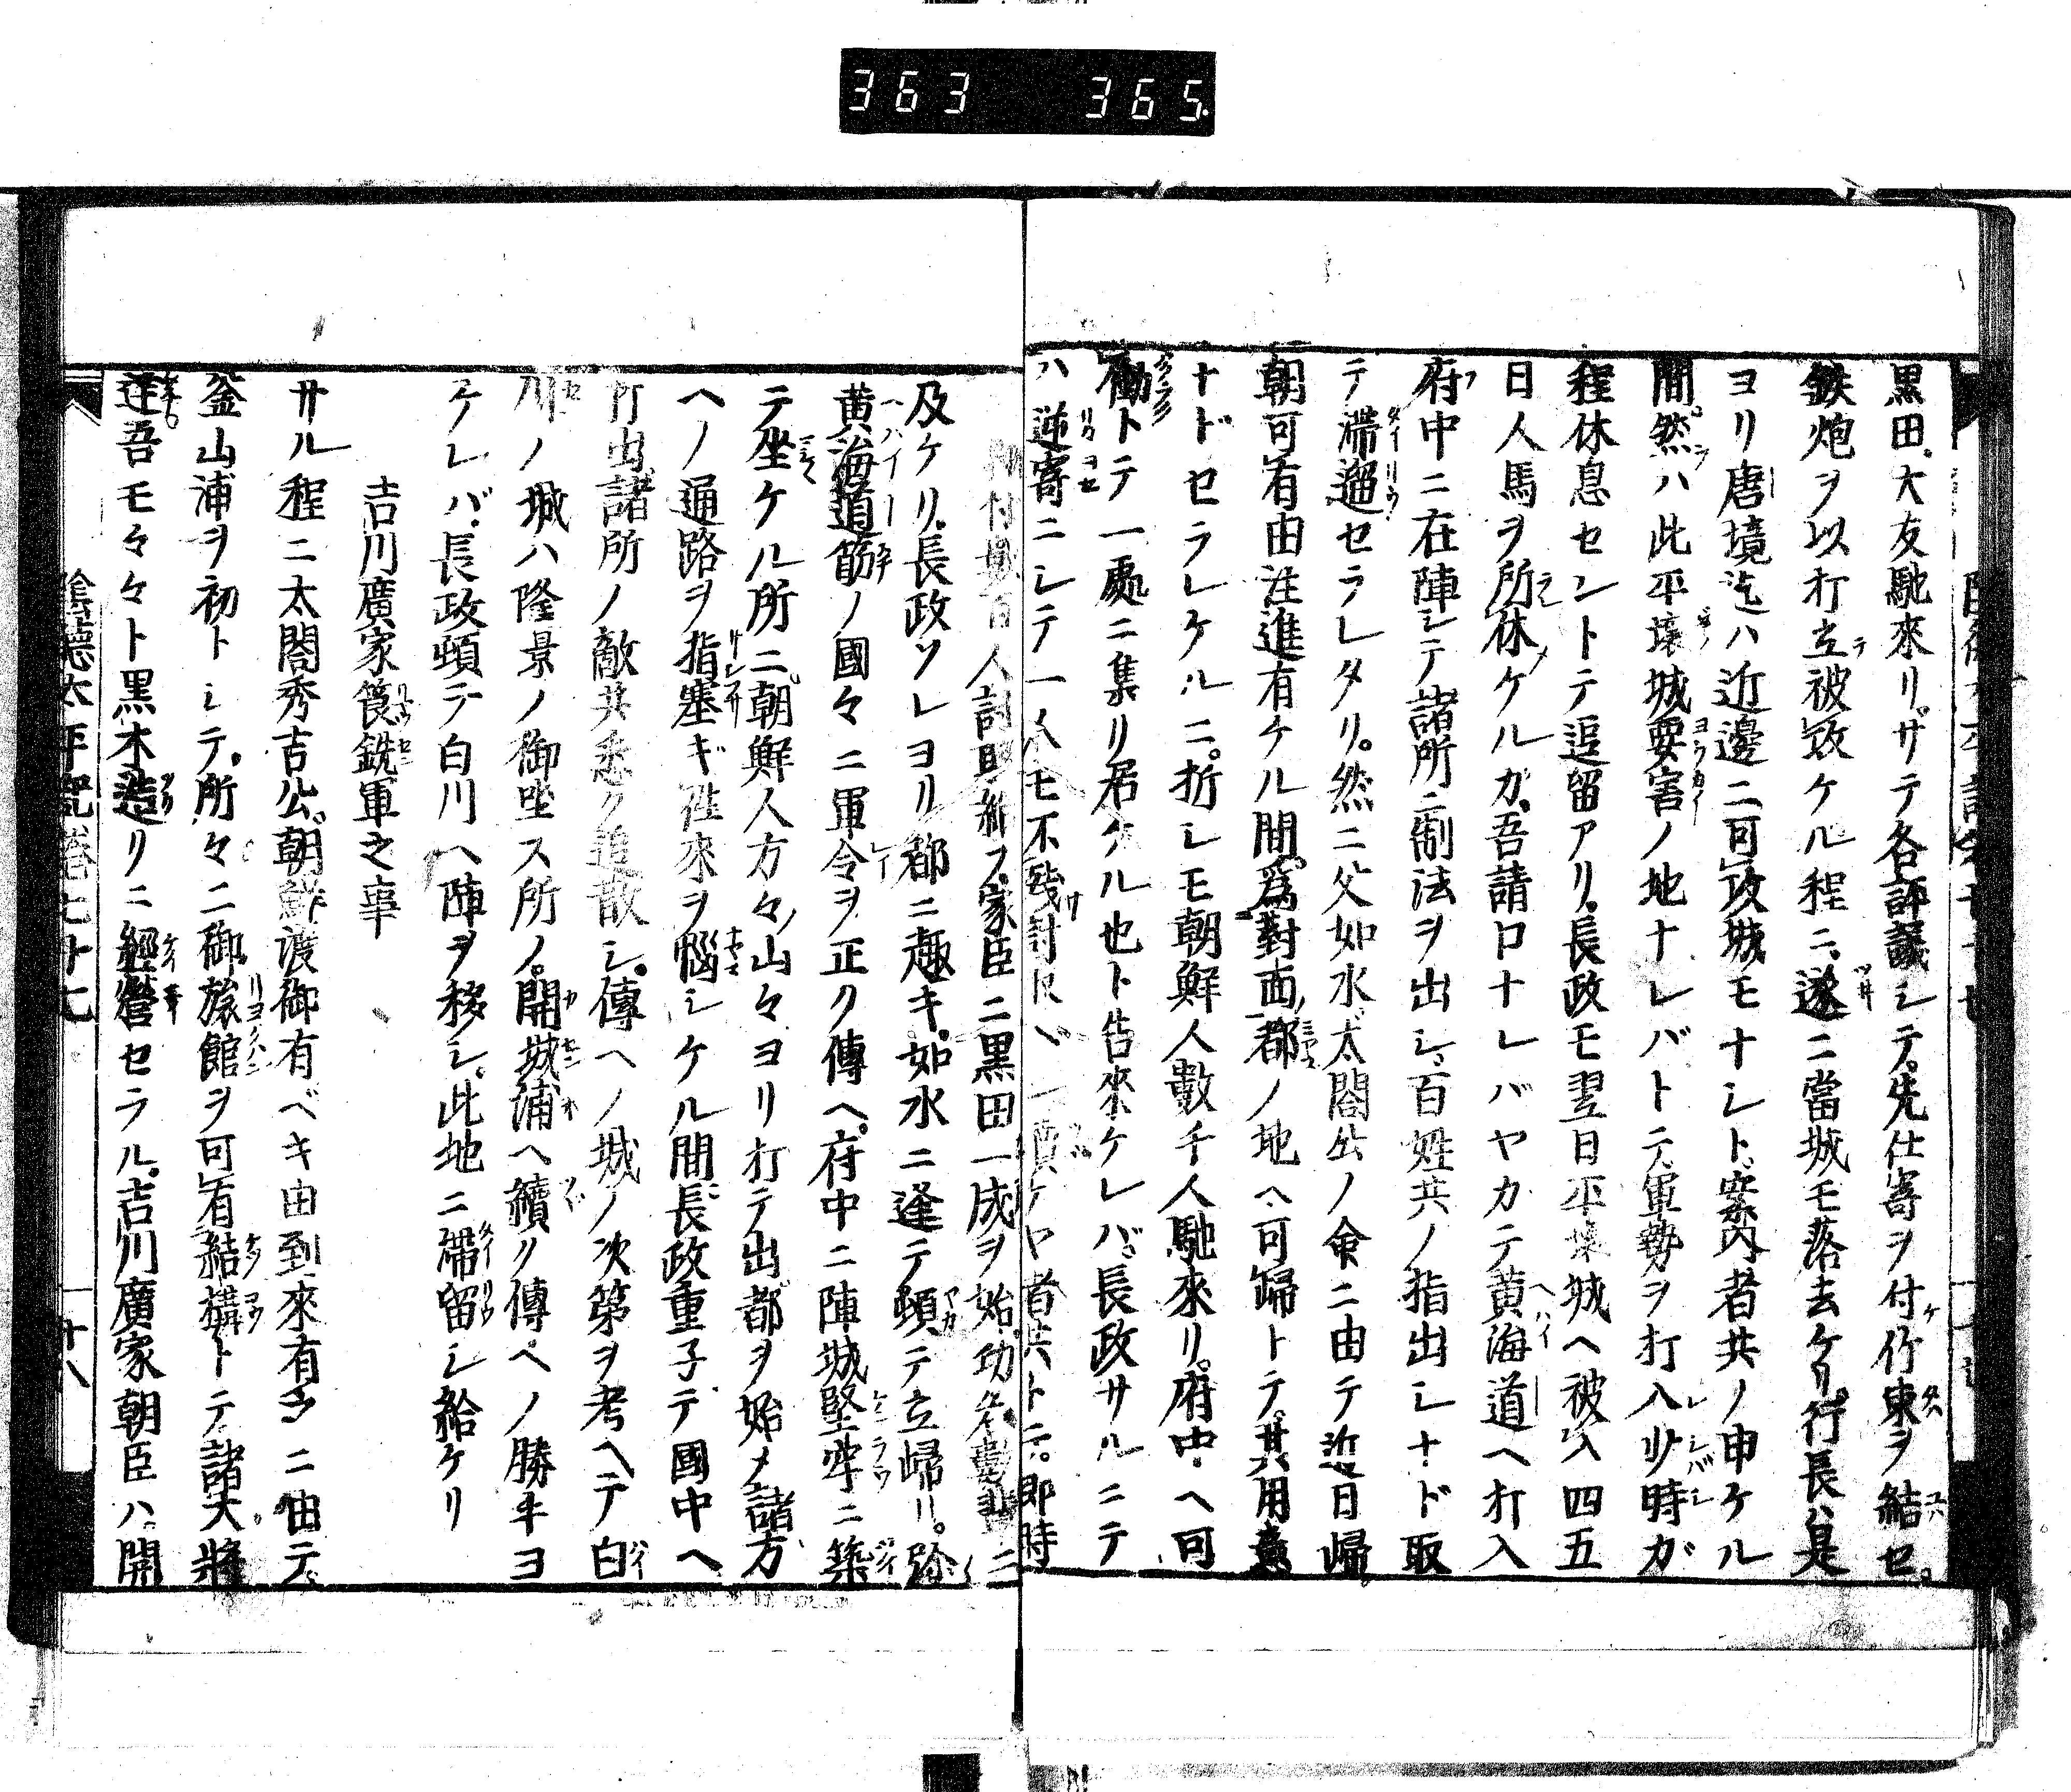 363 365
黒田大友馳來リ。サテ各評議シテ。先仕寄ヲ付竹束ヲ結セ。
鉄炮ヲ以打立被攻ケル程ニ、遂ニ當城モ落去ケリ。行長ハ是
ヨリ唐境迄ハ近邊ニ可攻城モナシト、案内者共ノ申ケル
間。然ハ此平壤城要害ノ地ナレバトテ、軍勢ヲ打入少時ガ
程休息セントテ逗留アリ。長政モ翌日平壤城ヘ被入四五
日人馬ヲ所休ケルガ、吾請口ナレバヤカテ黄海道ヘ打入
府中ニ在陣シテ諸所ニ制法ヲ出シ、百姓共ノ指出シナド取
テ滞遛セラレタリ。然ニ父如水、太閤公ノ命ニ由テ近日歸
朝可有由注進有ケル間、爲對面都ノ地ヘ可歸トテ。其用意
ナドセラレケルニ。折シモ朝鮮人數千人馳來リ。府中ヘ可
働トテ一處ニ集リ居ケル也ト告來ケレバ、長政サルニテ
ハ逆寄ニシテ一人モ不残討 者共トテ。即時
人討 家臣ニ黒田一成ヲ始功名 ニ
及ケリ。長政ソレヨリ都ニ趣キ。如水ニ逢テ頓テ立歸リ。
黄海道筋ノ國々ニ軍令ヲ正ク傳ヘ。府中ニ陣城堅牢ニ築
テ坐ケル所ニ、朝鮮人方々ノ山々ヨリ打テ出都ヲ始メ諸方
ヘノ通路ヲ指塞ギ往來ヲ惱シケル間、長政重子テ國中ヘ
打出諸所ノ敵共悉ク追散シ。傳ヘノ城ノ次第ヲ考ヘテ白
川ノ城ハ隆景ノ御坐ス所ノ。開城浦ヘ續ク傳ベノ勝手ヨ
ケレバ、長政頓テ白川ヘ陣ヲ移シ。此地ニ滯留シ給ケリ
吉川廣家 銑軍之事
サル程ニ太閤秀吉公、朝鮮渡御有ベキ由到來有シニ由テ、
釜山浦ヲ初トシテ。所々ニ御旅館ヲ可有結構トテ諸大將
逢吾モ々々ト黒木造リニ經營セラル。吉川廣家朝臣ハ開
陰德太平記卷七十七 十八